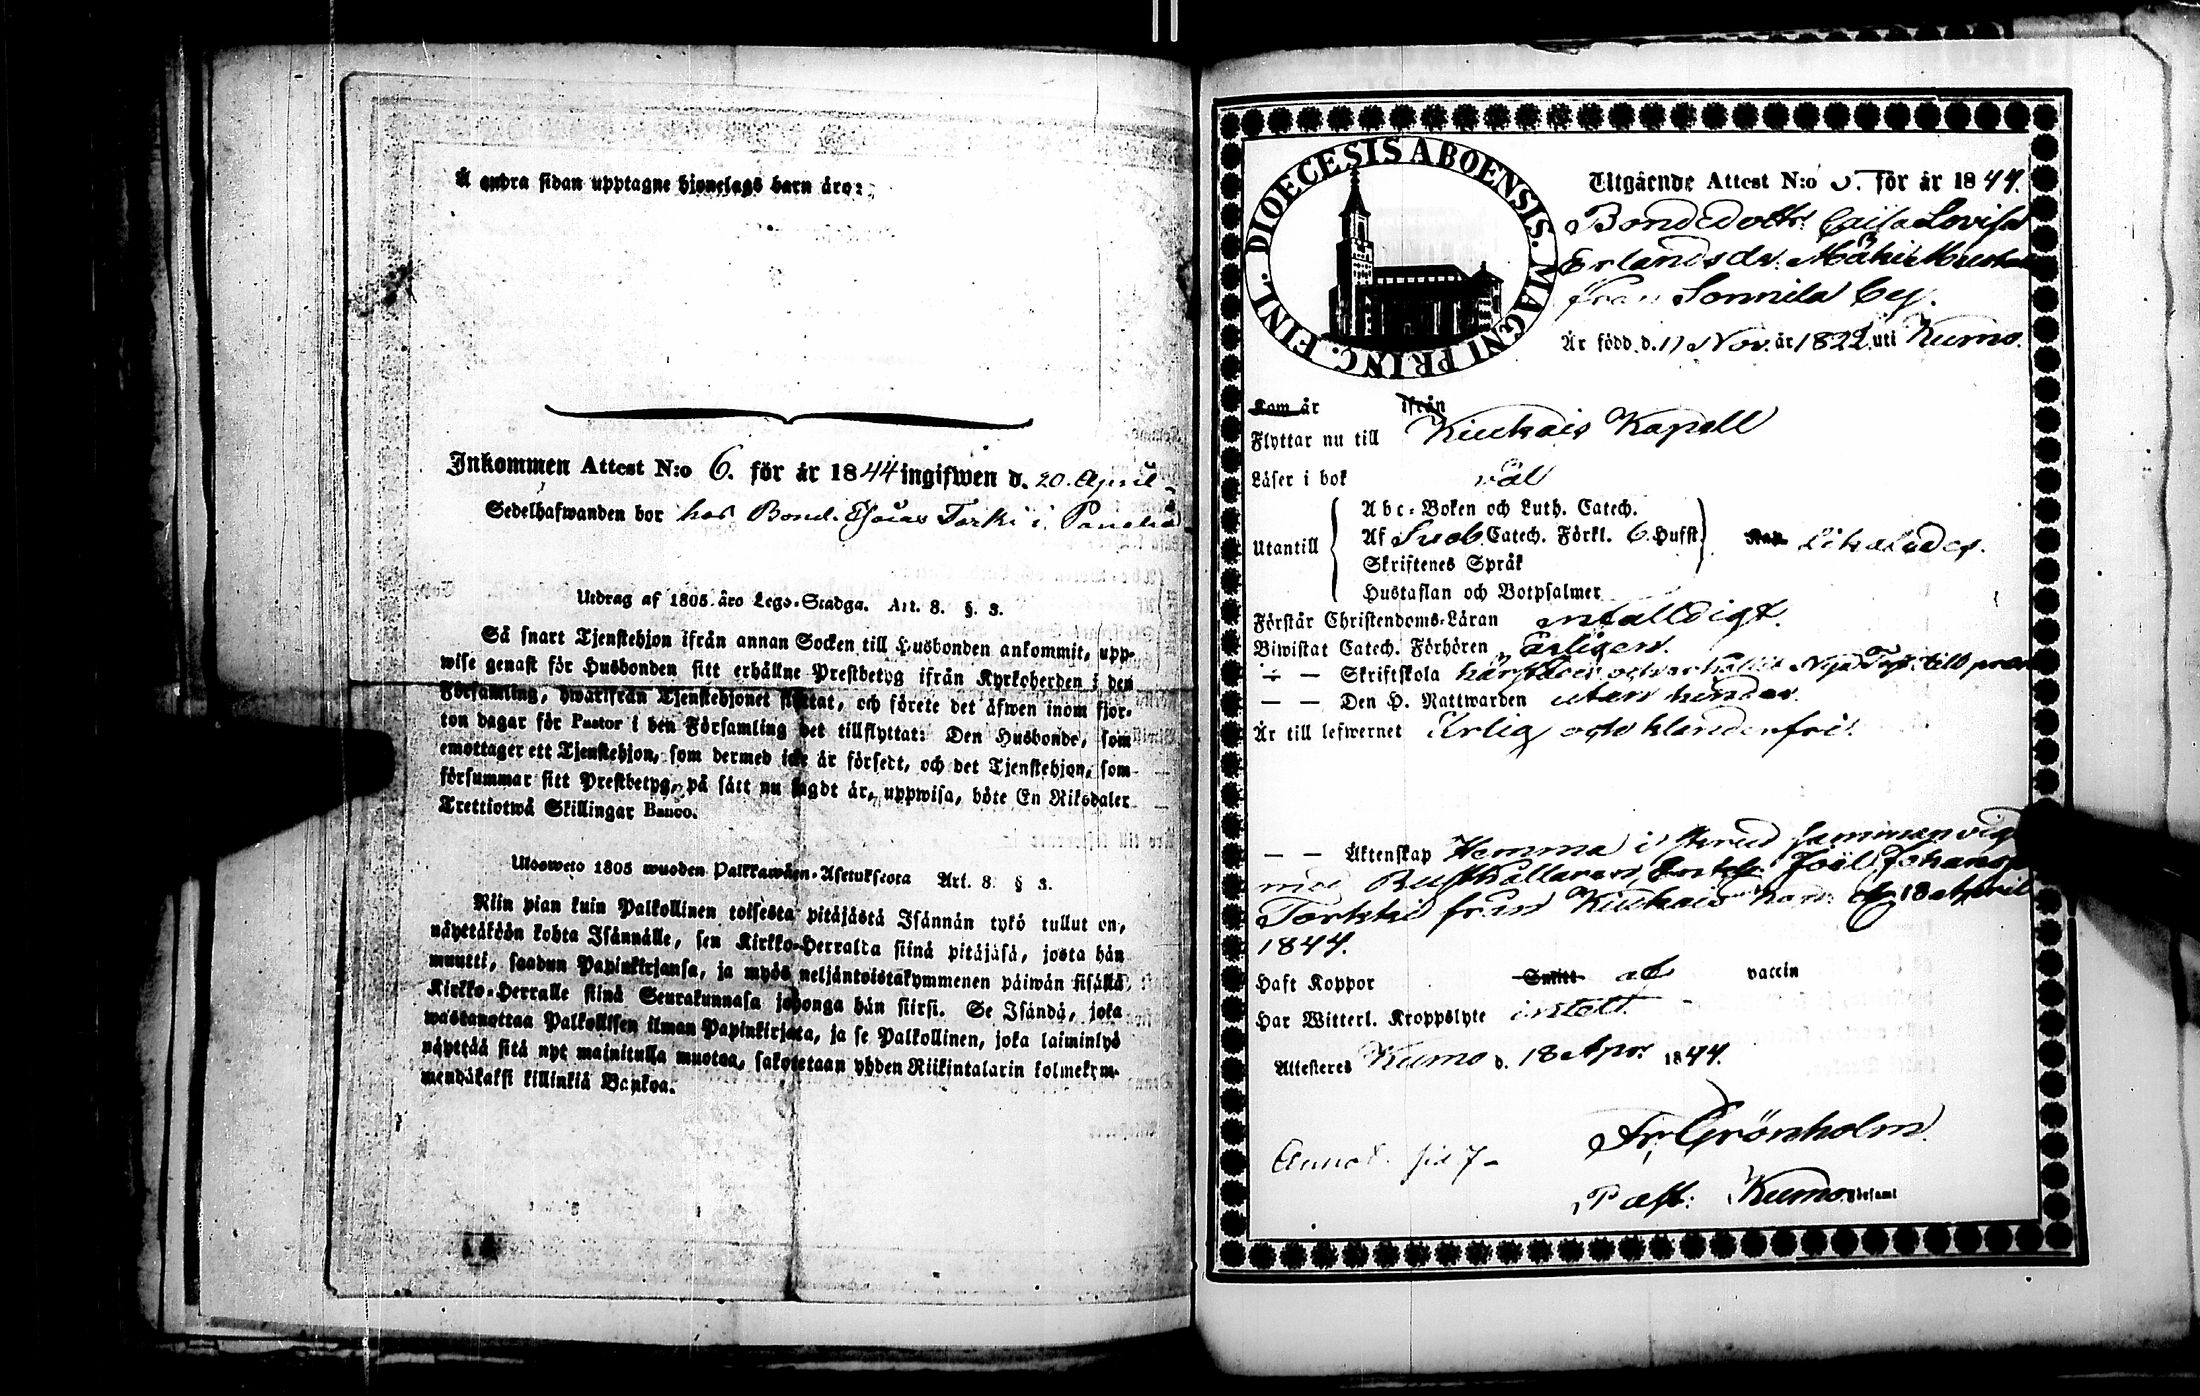 Å andra sidan upptagne hjonelags barn äro:
Inkommen Attest N:o 6. för år 1844 ingifwen d. 20. April
Sedelhafwanden bor hos Bond. Esaias Torki i Panelia
Utdrag af 1805 års Lego-Stadga. Art. 8. §. 3.
Så snart Tjenstehjon ifrån annan Socken till Husbonden ankommit, upp-
wise genast för Husbonden sitt erhållne Prestbetyg ifrån Kyrkoherden i den
Församling, hwarifrån Tjenstehjonet flyttat, och förete det äfwen inom fjor-
ton dagar för Pastor i den Församling det tillflyttat: Den Husbonde, som
emottager ett Tjenstehjon, som dermed icke är försedt, och det Tjenstehjon, som
försummar sitt Prestbetyg, på sätt nu sagdt är, uppwisa, böte En Riksdaler
Trettiotwå Skillingar Banco.
Ulosweto 1805 wuoden Palkkawäen-Asetuksesta Art. 8 § 3.
Niin pian kuin Palkollinen toisesta pitäjästä Isännän tykö tullut on,
näyttäköön kohta Isännälle, sen Kirkko-Herralda siinä pitäjäsä, josta hän
muutti, saadun Papinkirjansa, ja myös neljäntoistakymmenen päiwän sisällä,
Kirkko-Herralle siinä Seurakunnasa johonga hän siirsi. Se Isändä, joka
wastanottaa Palkollisen ilman Papinkirjata, ja se Palkollinen, joka laiminlyö
näyttää sitä nyt mainitulla muotoa, sakotetaan yhden Riikintalarin kolmekym-
mendäkaksi killinkiä Bankoa.
DIOECESIS ABOENSIS. MAGNI PRINC. FINL.
Utgående Attest N:o 5. för år 1844.
Bondedottr Caisa Lovisa
Erlandsdr: Mähi
från Sonnila by.
Är född d. 11 Nov. år 1822 uti Kumo.
Kom år ifrån
Flyttar nu till Kiukais Kapell
Läser i bok väl
Utantill
Abc-Boken och Luth. Catech.
Af Sveb. Catech. Förkl. 6. Hufst.
Skriftenes Språk
Hustaflan och Botpsalmer
Kan Likaledes.
Förstår Christendoms-Läran enfalldigt.
Biwistat Catech. Förhören årligen.
— — Skriftskola härstädes och erhållit Nya Test. till præm
— — Den H. Nattwarden utan hinder.
Är till lefwernet Ärlig och klanderfri.
— — Äktenskap Hemma i sammanvigd
med Rusthållaren Joël Johansson
Torkki från Kiukais den 18 April
1844.
Haft Koppor Smitt af vaccin
Har Witterl. Kroppslyte intet.
Attesteres Kumo d. 18 Apr. 1844.
Fr. Grönholm.
Annot. sid 7-
Past: Kumo.